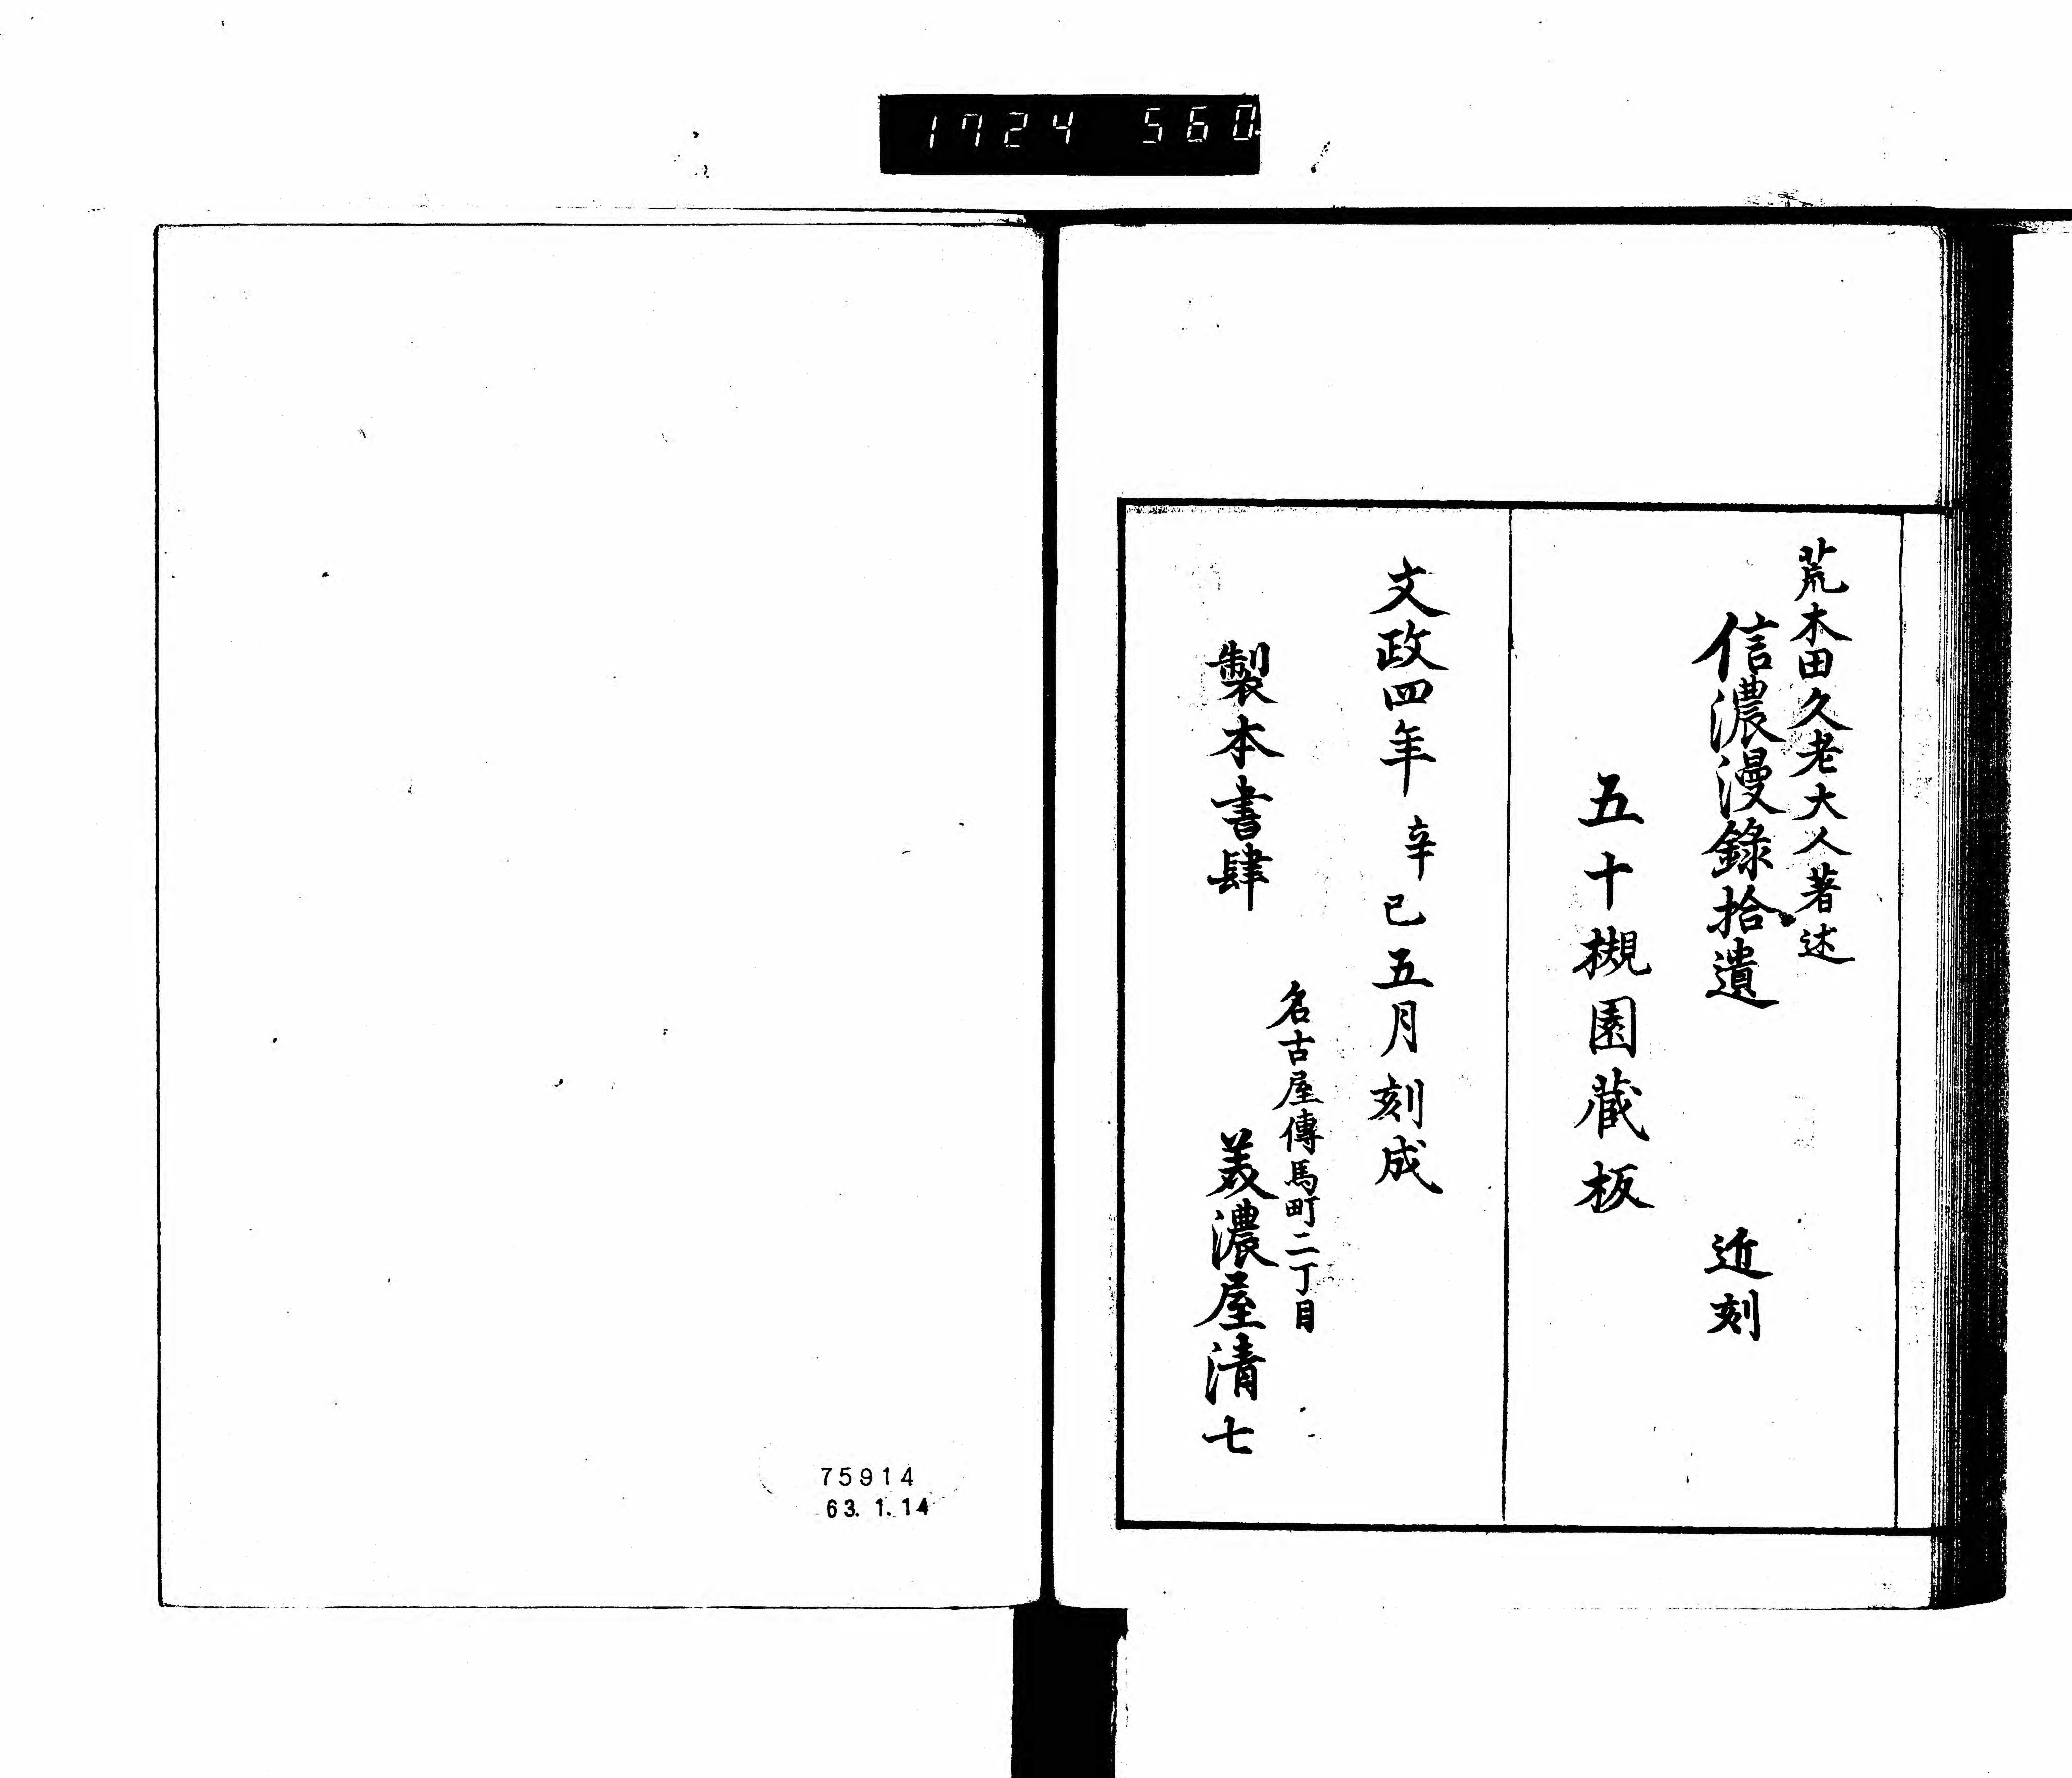 1724 560
荒木田久老大人著述
信濃漫錄拾遺 近刻
五十槻園蔵板
文政四年辛巳五月刻成
名古屋傳馬町二丁目
製本書肆 美濃屋清七
75914
63.1.14